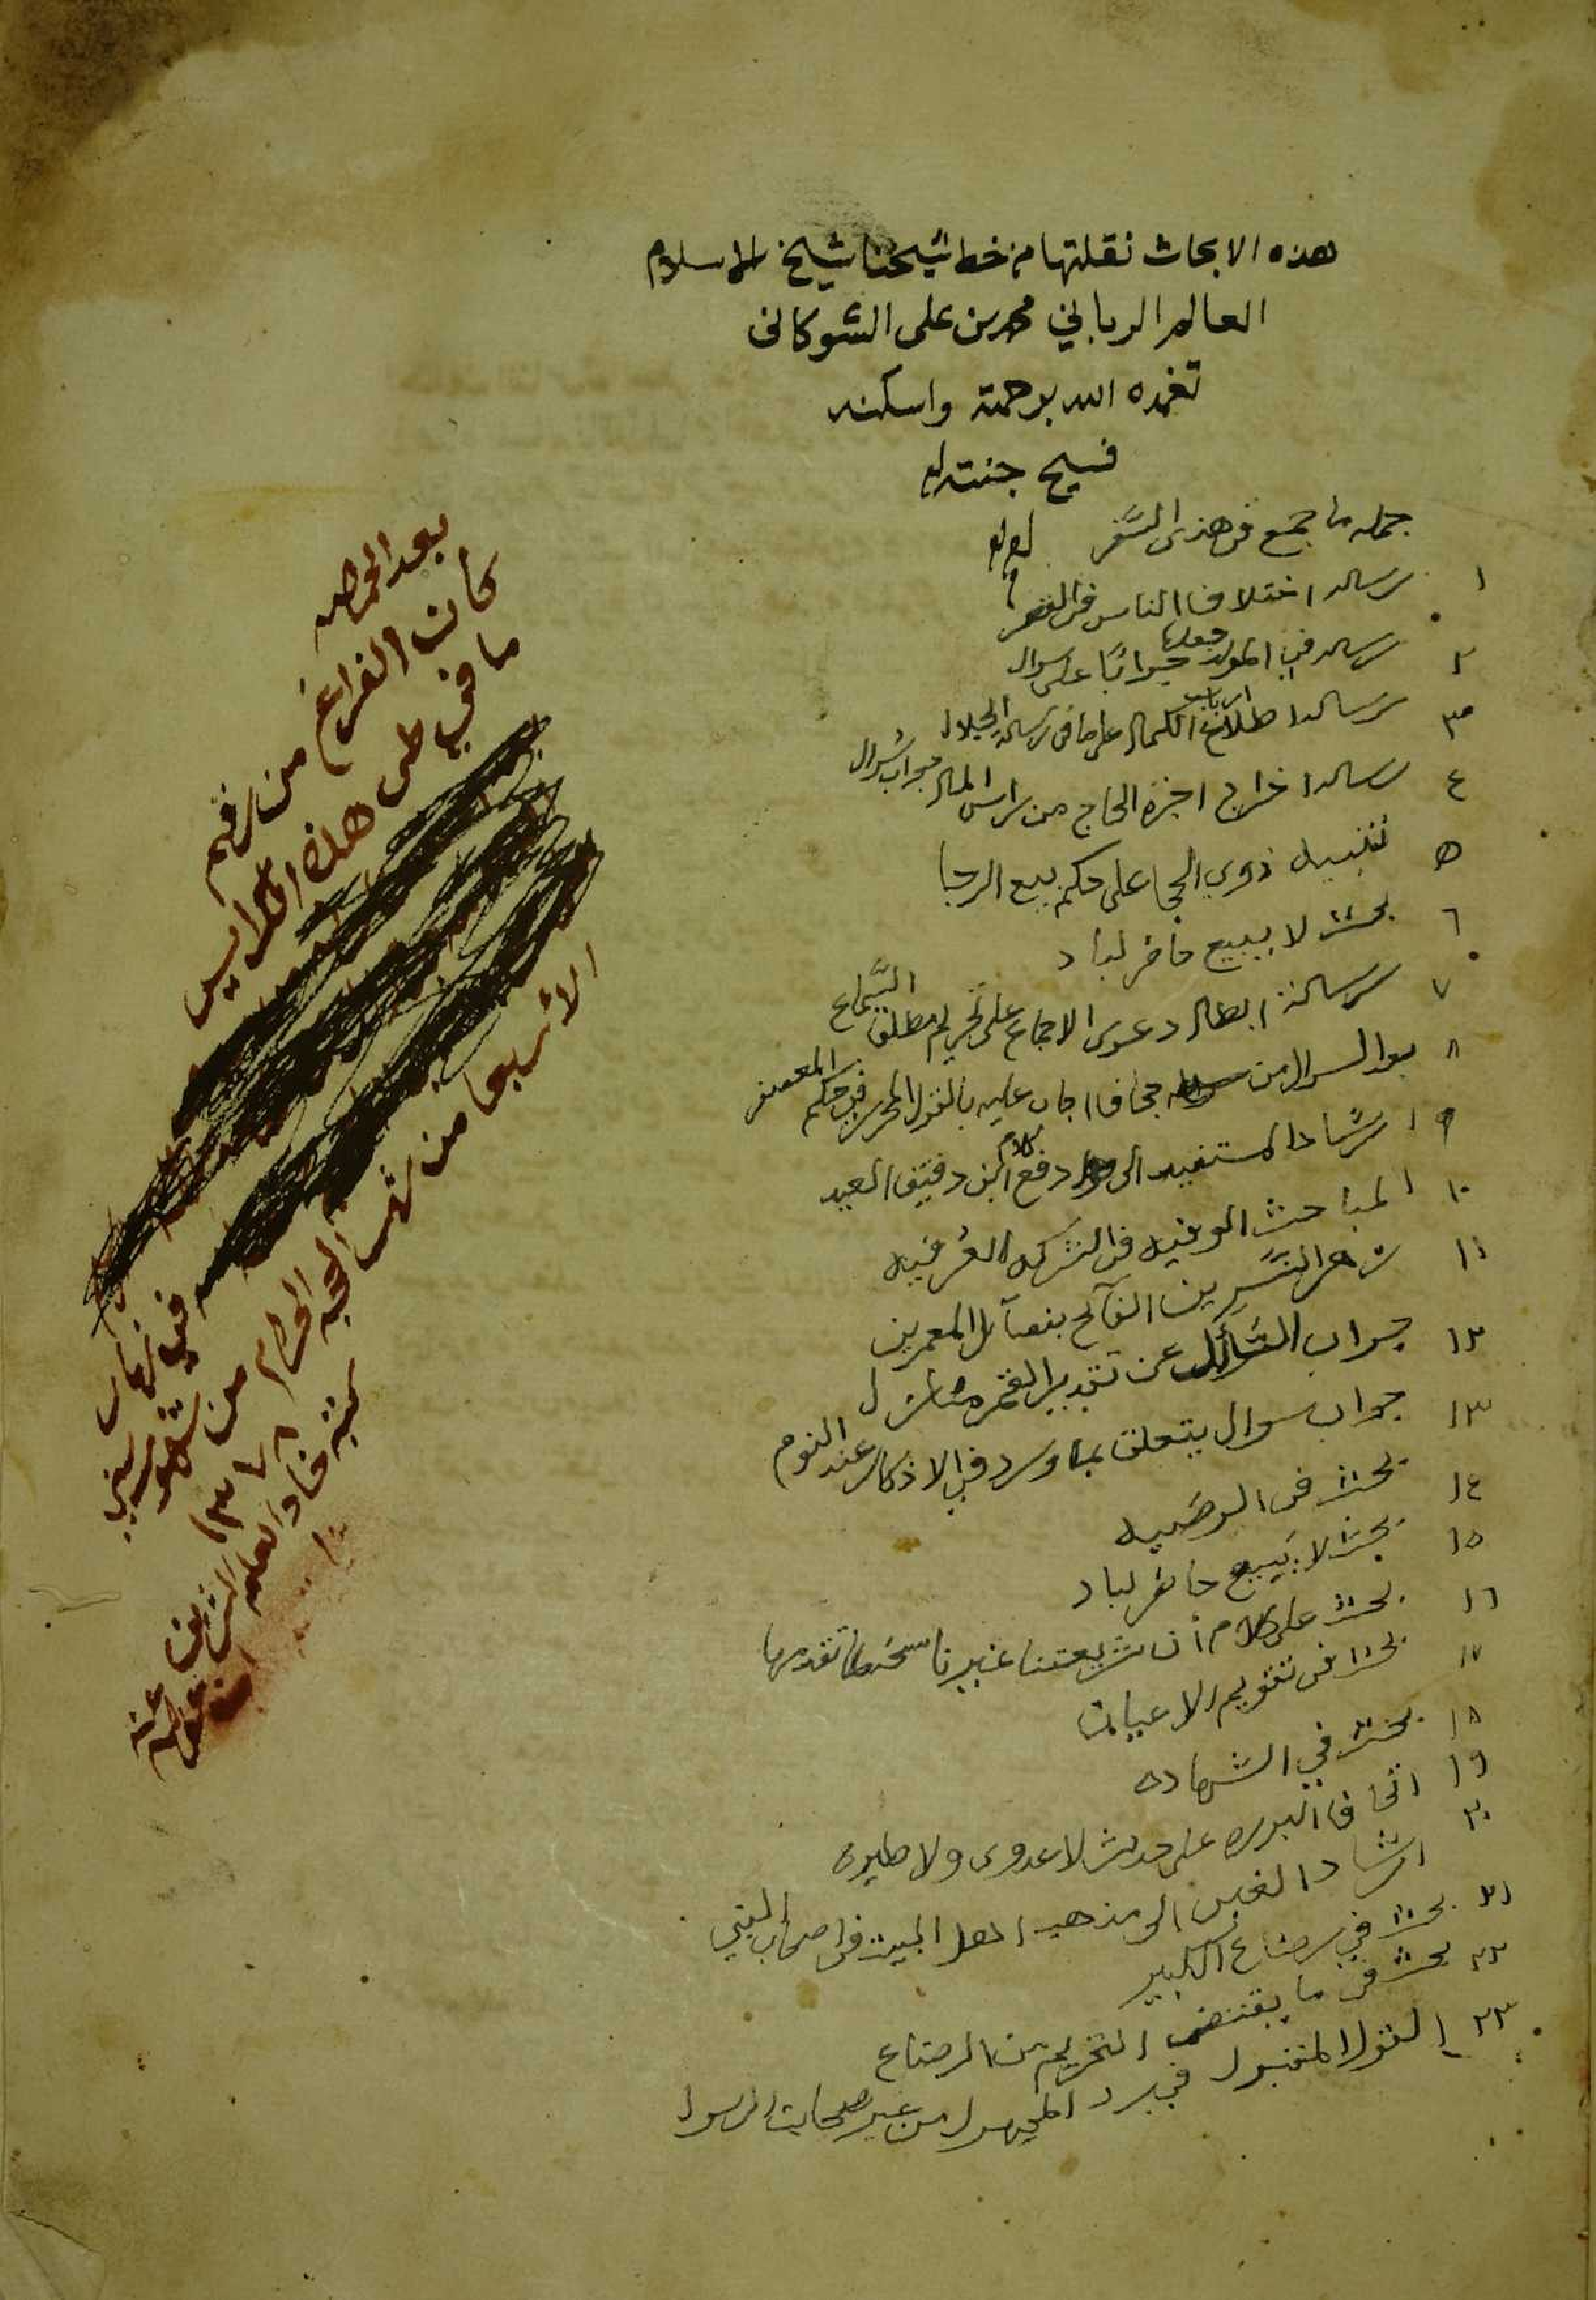 هذه الابحاث نقلتها من خط شيخنا شيخ الاسلام
العالم الرباني محمد بن على الشوكانى
تغمده الله برحمته واسكنه
فسيح جنته
جمله ما جمع فى هذى السَّفر
١ رساله اختلاف الناس فى
٢ رساله في المولد جعلها جوابًا على سوال
٣ رساله اطلاع ارباب الكمال على ما فى رساله الجلال
٤ رساله اخراج اجرة الحاج من راس المال جواب سُوال
٥ تنبيه ذوي الحجا على حكم بيع الرجا
٦ بحث لا يبيع حاضر لباد
٧ رسالة ابطال دعوى الاجماع على تحريم مطلق السَّماع
٨ فاجاب عليه بالقول المحرر في حكم المعصفر
٩ ارشاد المستفيد الى دفع كلام ابن دقيق العيد
١٠ المباحث الوفيه فى الشركه العُرفيه
١١ زهر النَّسرين الفآئح بفضآئل المعمرين
١٢ جواب السَّائل عن تقدير القمر منازل
١٣ جواب سوال يتعلق بما ورد في الاذكار عند النوم
١٤ بحث فى الوصَّيه
١٥ بحث لا يبيع حاضر لباد
١٦ بحث على كلام أن شريعتنا
١٧ بحث فى تقويم الاعيان
١٨ بحث في الشهاده
١٩ اتحاف البرره على حديث لا عدوى ولا طيره
٢٠ ارشاد الغبى الى مذهب اهل البيت فى اصحاب النبي
٢١ بحث في رضاع الكبير
٢٢ بحث فى ما يقتضى التحريم من الرضاع
٢٣ القول المقبول في رد المجهول من غير صحابة الرسول
بعد الحمد لله
كان الفراغ من رقم
ما في طى هذه الكراريس
في نهار
الاربعا من شهر الحجه الحرام من شهور سني
١٣٧٨